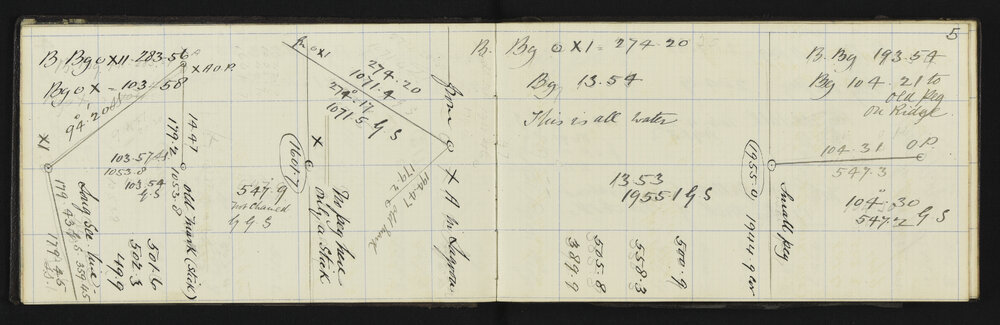 5
B. Bg ⊙ XII - 283.56
X A O.P.
Bg ⊙ X - 103 - 58
94°.20
XI
14.47
179.2
1053.8
old mark (stick)
103.57
1053.8
103.54
G S
179 43
359.45
179.45
501.6
502.3
49.9
fm ⊙ XI
274.20
1071.4
274°.17
1071.5 G S
X
1601.7
No peg here
only a Stick
547.9
Not Chained
G G S
179.2 old mark
from ⊙ X A in Lagoon
B. Bg ⊙ XI = 274.20
Bg 13.54
This is all water
13.53
1955.1 G S
500.9
558.3
505.8
389.9
B. Bg 193.54
Bg 104.21 to
old Peg
on Ridge
1955.0
104.31 O.P.
547.3
Small peg
104°.30
547.2 G S